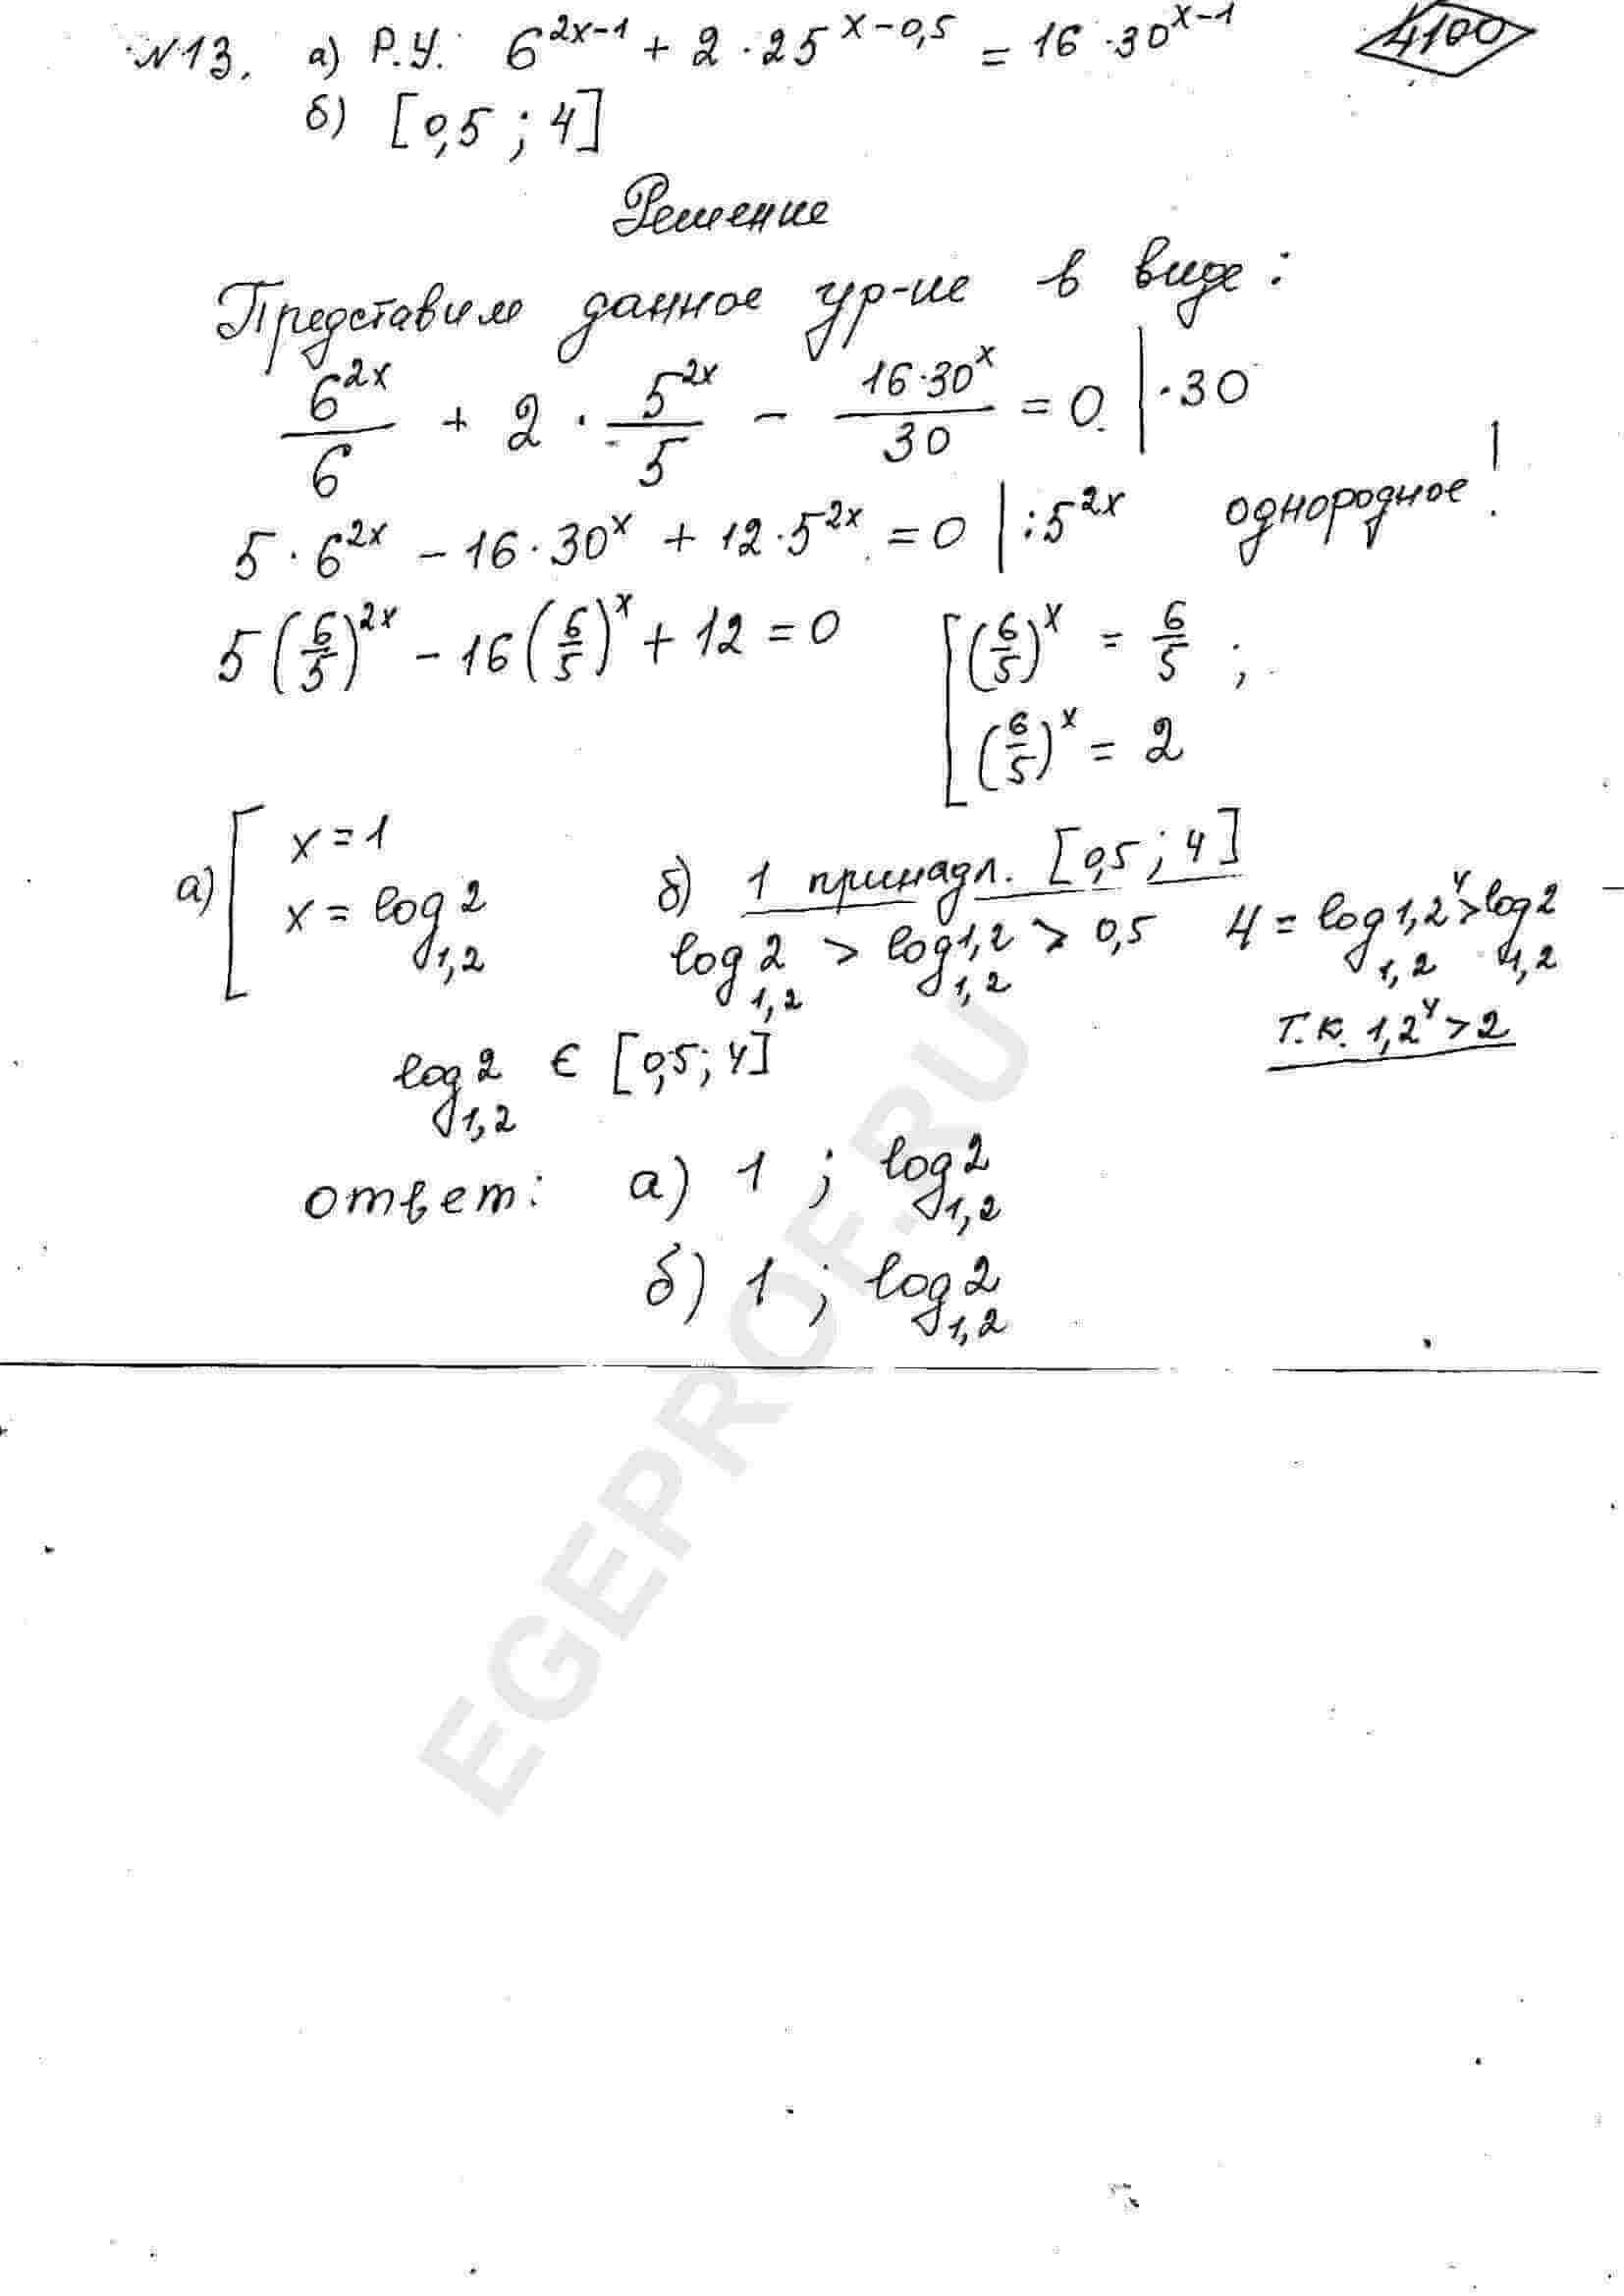 №13. а) Р.У. 6^{2x-1} + 2·25^{x-0,5} = 16·30^{x-1} 4100
б) [0,5 ; 4]
Решение
Представим данное ур-ие в виде:
6^{2x}/6 + 2 · 5^{2x}/5 - 16·30^x/30 = 0 | ·30
5·6^{2x} - 16·30^x + 12·5^{2x} = 0 | :5^{2x} однородное!
5(6/5)^{2x} - 16(6/5)^x + 12 = 0 [ (6/5)^x = 6/5 ;
(6/5)^x = 2
а) [ x = 1
x = log_{1,2} 2
б) 1 принадл. [0,5 ; 4]
log_{1,2} 2 > log_{1,2} 1,2 > 0,5 4 = log_{1,2} 1,2^4 > log_{1,2} 2
т.к. 1,2^4 > 2
log_{1,2} 2 ∈ [0,5; 4]
ответ: а) 1 ; log_{1,2} 2
б) 1 ; log_{1,2} 2
EGEPROF.RU